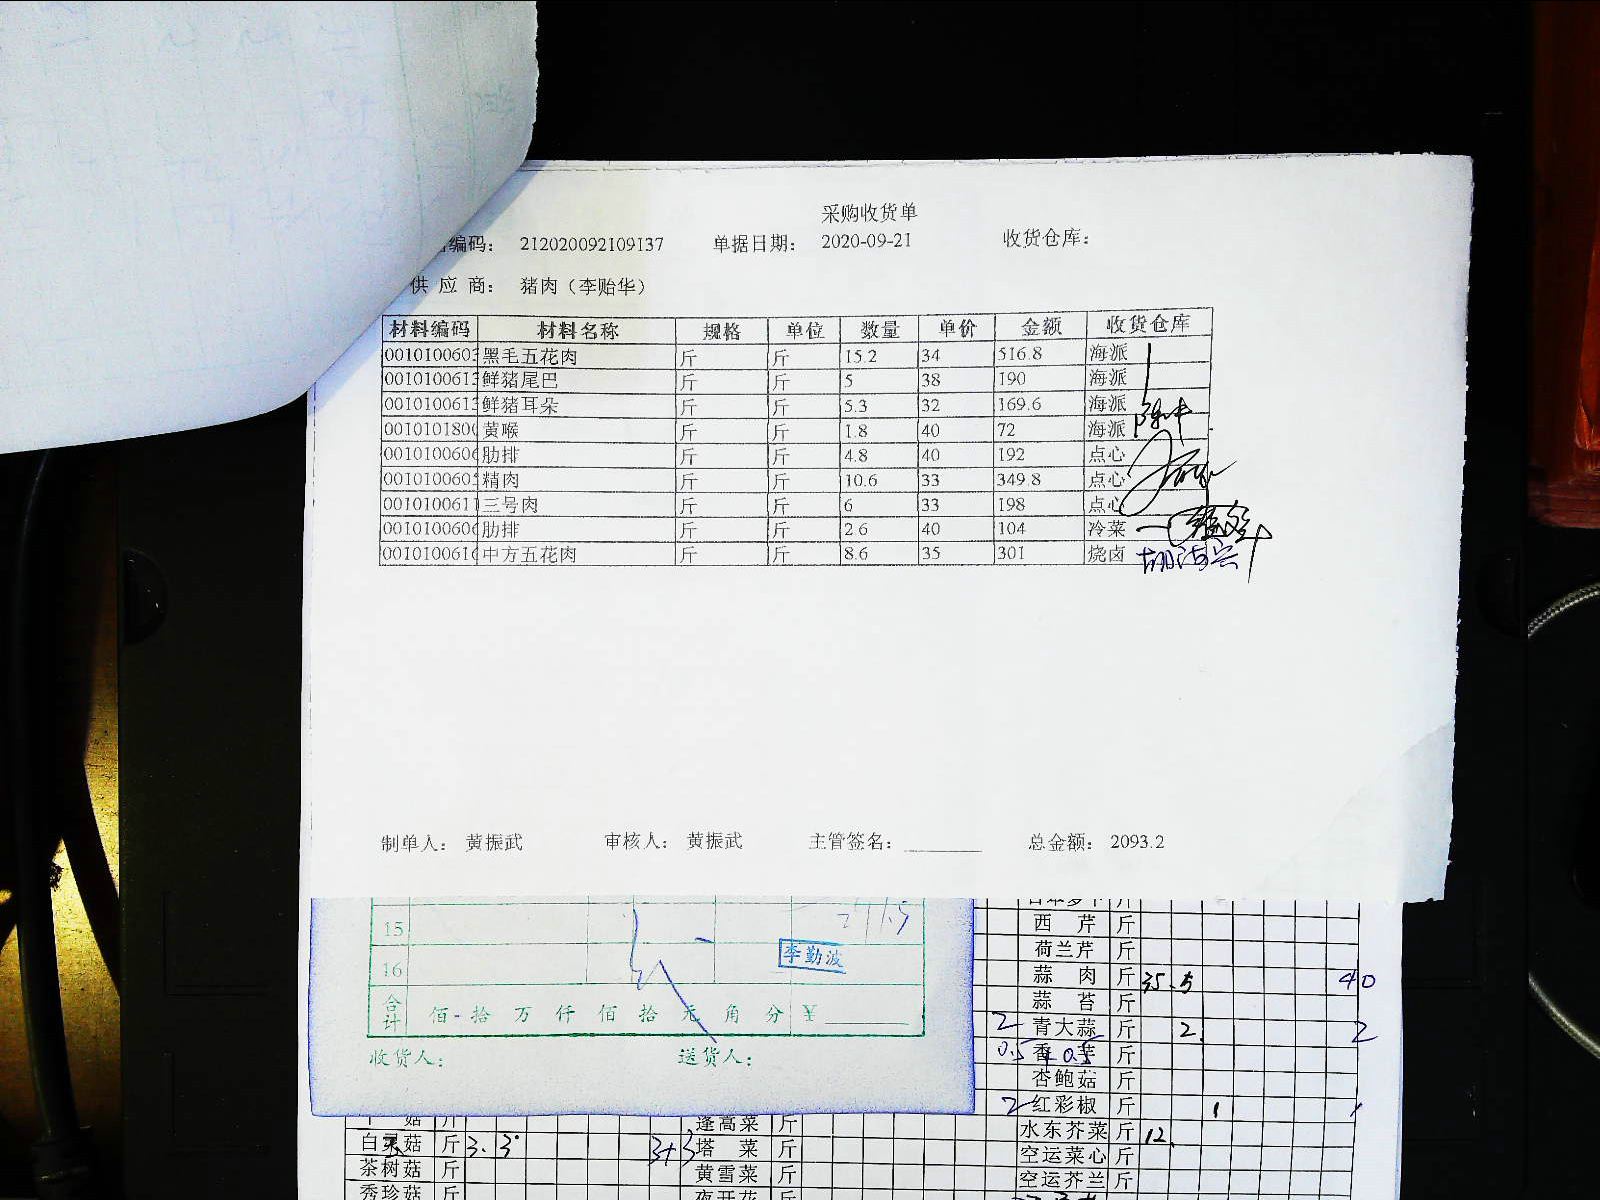 采购收货单
编码： 212020092109137 单据日期： 2020-09-21 收货仓库：
供 应 商： 猪肉（李贻华）
材料编码 材料名称 规格 单位 数量 单价 金额 收货仓库
001010060 黑毛五花肉 斤 斤 15.2 34 516.8 海派
001010061 鲜猪尾巴 斤 斤 5 38 190 海派
001010061 鲜猪耳朵 斤 斤 5.3 32 169.6 海派
001010180 黄喉 斤 斤 1.8 40 72 海派
001010060 肋排 斤 斤 4.8 40 192 点心
001010060 精肉 斤 斤 10.6 33 349.8 点心
001010061 三号肉 斤 斤 6 33 198 点心
001010060 肋排 斤 斤 2.6 40 104 冷菜
001010061 中方五花肉 斤 斤 8.6 35 301 烧卤
制单人： 黄振武 审核人： 黄振武 主管签名： 总金额： 2093.2
15
16 李勤波
合计 佰 拾 万 仟 佰 拾 元 角 分 ¥
收货人： 送货人：
西 芹 斤
荷兰芹 斤
蒜 肉 斤 35.5 40
蒜 苔 斤
2 青大蒜 斤 2 2
0.5 香 芋 斤
杏鲍菇 斤
2 红彩椒 斤 1 1
水东芥菜 斤 12
空运菜心 斤
空运芥兰 斤
菇 斤 蓬蒿菜 斤
白灵菇 斤 3. 3 3+3 塔 菜 斤
茶树菇 斤 黄雪菜 斤
秀珍菇 斤 夜开花 斤